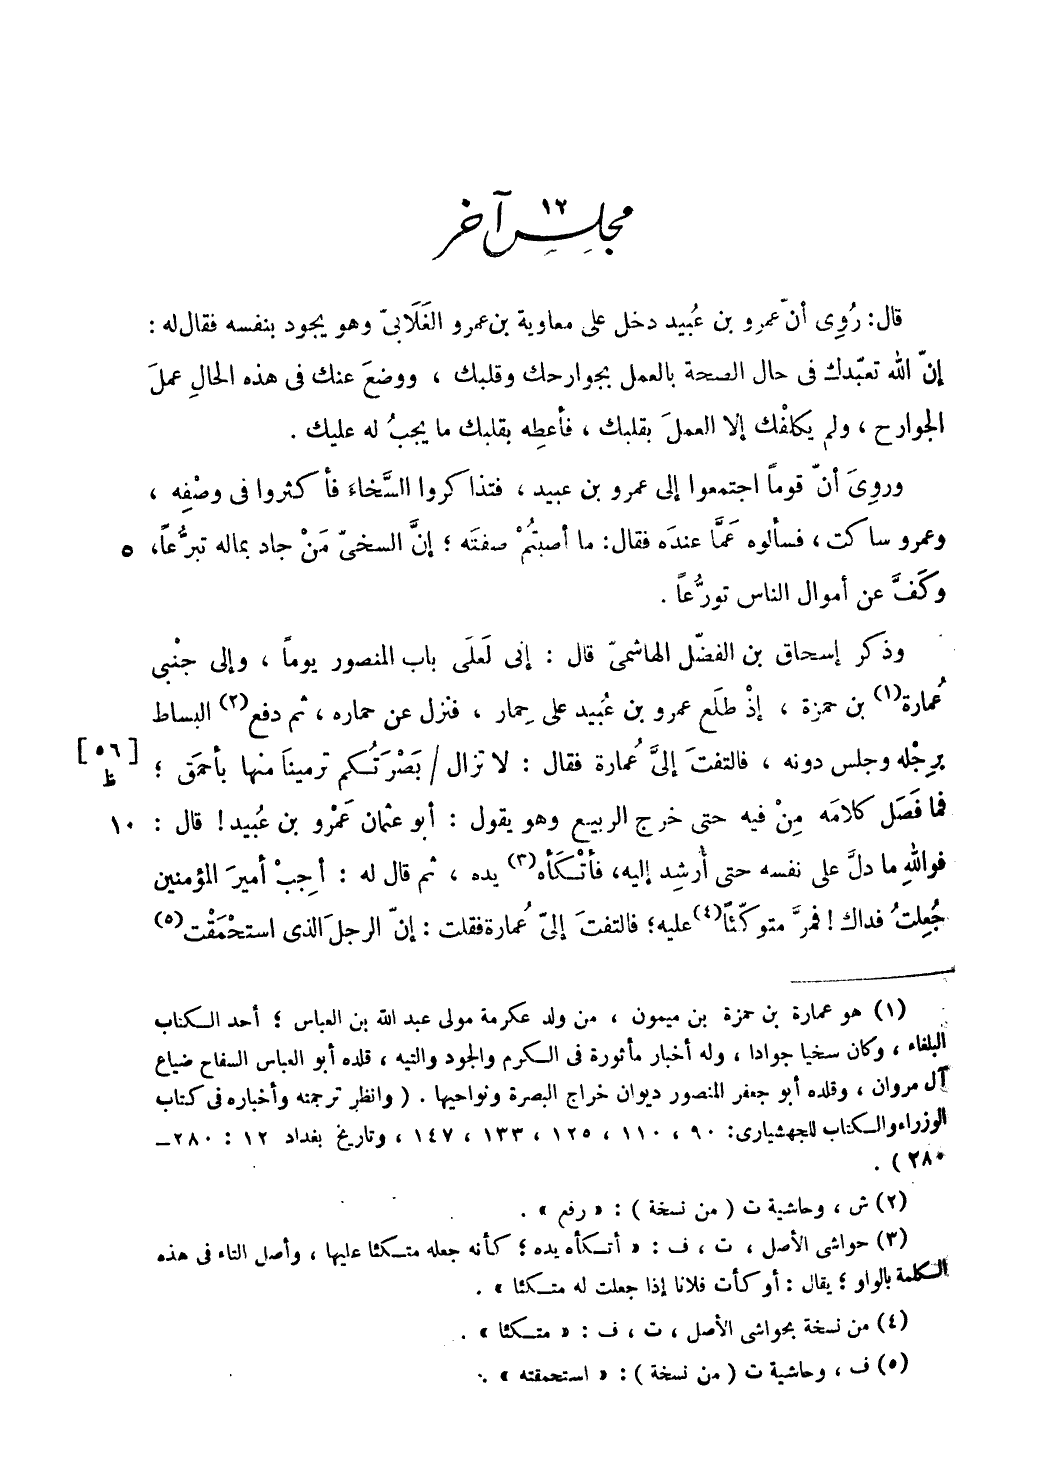 مجلس آخر
١٢
قال: رُوِى أنّ عمرو بن عُبيد دخل على معاوية بن عمرو الغَلَابىّ وهو يجود بنفسه فقال له :
إنّ الله تعبّدك فى حال الصحة بالعمل بجوارحك وقلبك ، ووضعَ عنك فى هذه الحالِ عملَ
الجوارح ، ولم يكلفْك إلا العملَ بقلبك ، فأعطِه بقلبك ما يجبُ له عليك .
وروِىَ أنّ قوماً اجتمعوا إلى عمرو بن عبيد ، فتذاكروا السَّخاءَ فأكثروا فى وصْفِه ،
وعمرو ساكت ، فسألوه عَمَّا عندَه فقال: ما أصبتُمْ صفتَه ؛ إنَّ السخىّ مَنْ جاد بماله تبرُّعاً، ٥
وكَفَّ عن أموال الناس تورُّعاً .
وذكر إسحاق بن الفضّل الهاشمىّ قال : إنى لَعلَى باب المنصور يوماً ، وإلى جنْبى
عُمارة(١) بن حمزة ، إذْ طلَع عمرو بن عُبيد على حِمار ، فنزل عن حماره ، ثم دفع(٢) البساط
برِجْله وجلس دونه ، فالتفتَ إلىَّ عُمارة فقال : لا تزال / بَصْرَتُكم ترمينَا منها بأحمَق ؛ [٥٦ ظ]
فما فَصَل كلامَه مِنْ فيه حتى خرج الربيع وهو يقول : أبو عثمان عَمْرو بن عُبيد! قال : ١٠
فواللهِ ما دلَّ على نفسه حتى أُرشِد إليه، فأتْكأه(٣) يده ، ثم قال له : أجِبْ أميرَ المؤمنين
جُعِلتُ فداك ! فمرَّ متوكّئاً(٤) عليه؛ فالتفتَ إلىّ عُمارة فقلت : إنّ الرجلَ الذى استحْمَقْت(٥)
(١) هو عمارة بن حمزة بن ميمون ، من ولد عكرمة مولى عبد الله بن العباس ؛ أحد الكتاب
البلغاء ، وكان سخيا جوادا ، وله أخبار مأثورة فى الكرم والجود والتيه ، قلده أبو العباس السفاح ضياع
آل مروان ، وقلده أبو جعفر المنصور ديوان خراج البصرة ونواحيها . ( وانظر ترجمته وأخباره فى كتاب
الوزراء والكتاب للجهشيارى: ٩٠ ، ١١٠ ، ١٢٥ ، ١٣٣ ، ١٤٧ ، وتاريخ بغداد ١٢ : ٢٨٠ـ
٢٨٠ ) .
(٢) ش ، وحاشية ت ( من نسخة ) : « رفع » .
(٣) حواشى الأصل ، ت ، ف : « أتكأه يده ؛ كأنه جعله متكئا عليها ، وأصل التاء فى هذه
الكلمة بالواو ؛ يقال : أوكأت فلانا إذا جعلت له متكئا » .
(٤) من نسخة بحواشى الأصل ، ت ، ف : « متكئا » .
(٥) ف ، وحاشية ت ( من نسخة ) : « استحمقته » .